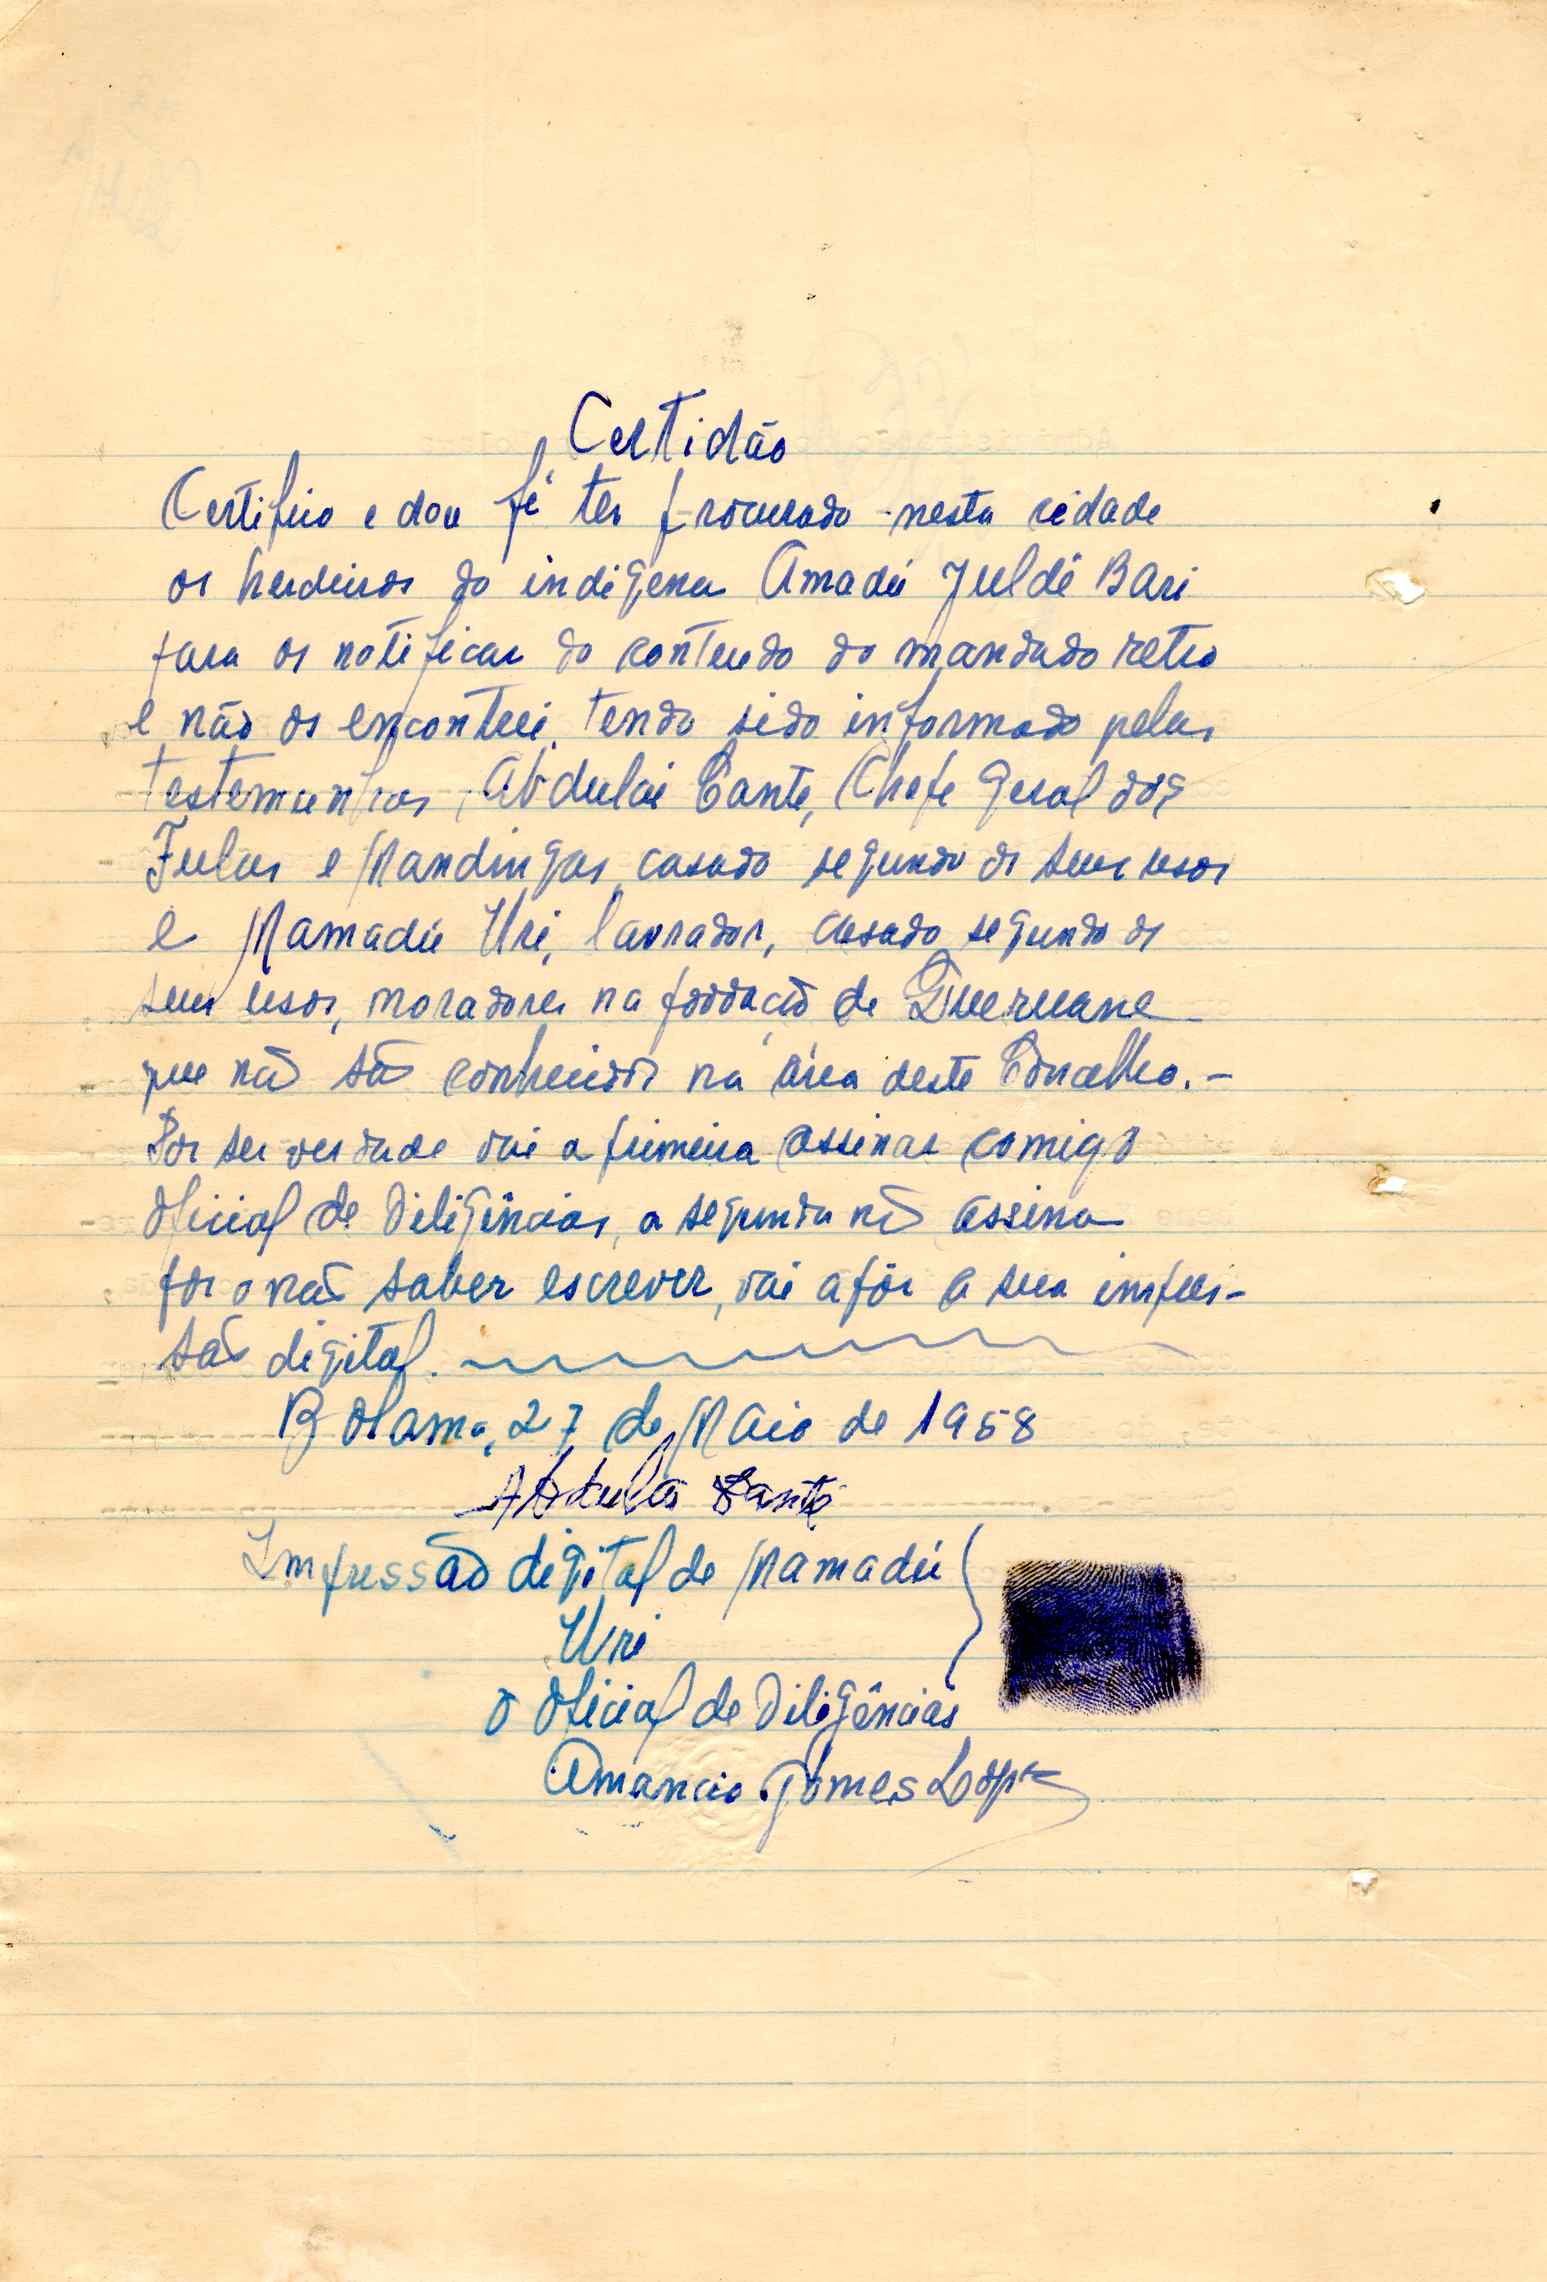 Certidão
Certifico e dou fé ter procurado nesta cidade
os herdeiros do indigena Amadú Juldé Bari
para os notificar do conteudo do mandado retro
e não os encontrei, tendo sido informado pelas
testemunhas, Abdulai Cante, Chefe Geral dos
Fulas e Mandingas, casado segundo os seus usos
e Mamadú Uri, lavrador, casado segundo os
seus usos, moradores na povoação de
que não são conhecidos na área deste Concelho.-
Por ser verdade vai a primeira assinar comigo
Oficial de Diligências, a segunda não assina
por o não saber escrever, vai apôr a sua impres-
são digital.
Bolama, 27 de Maio de 1958
Abdulai Canté
Impressão digital de Mamadú
Uri
O Oficial de Diligências
Amancio Gomes Lopes